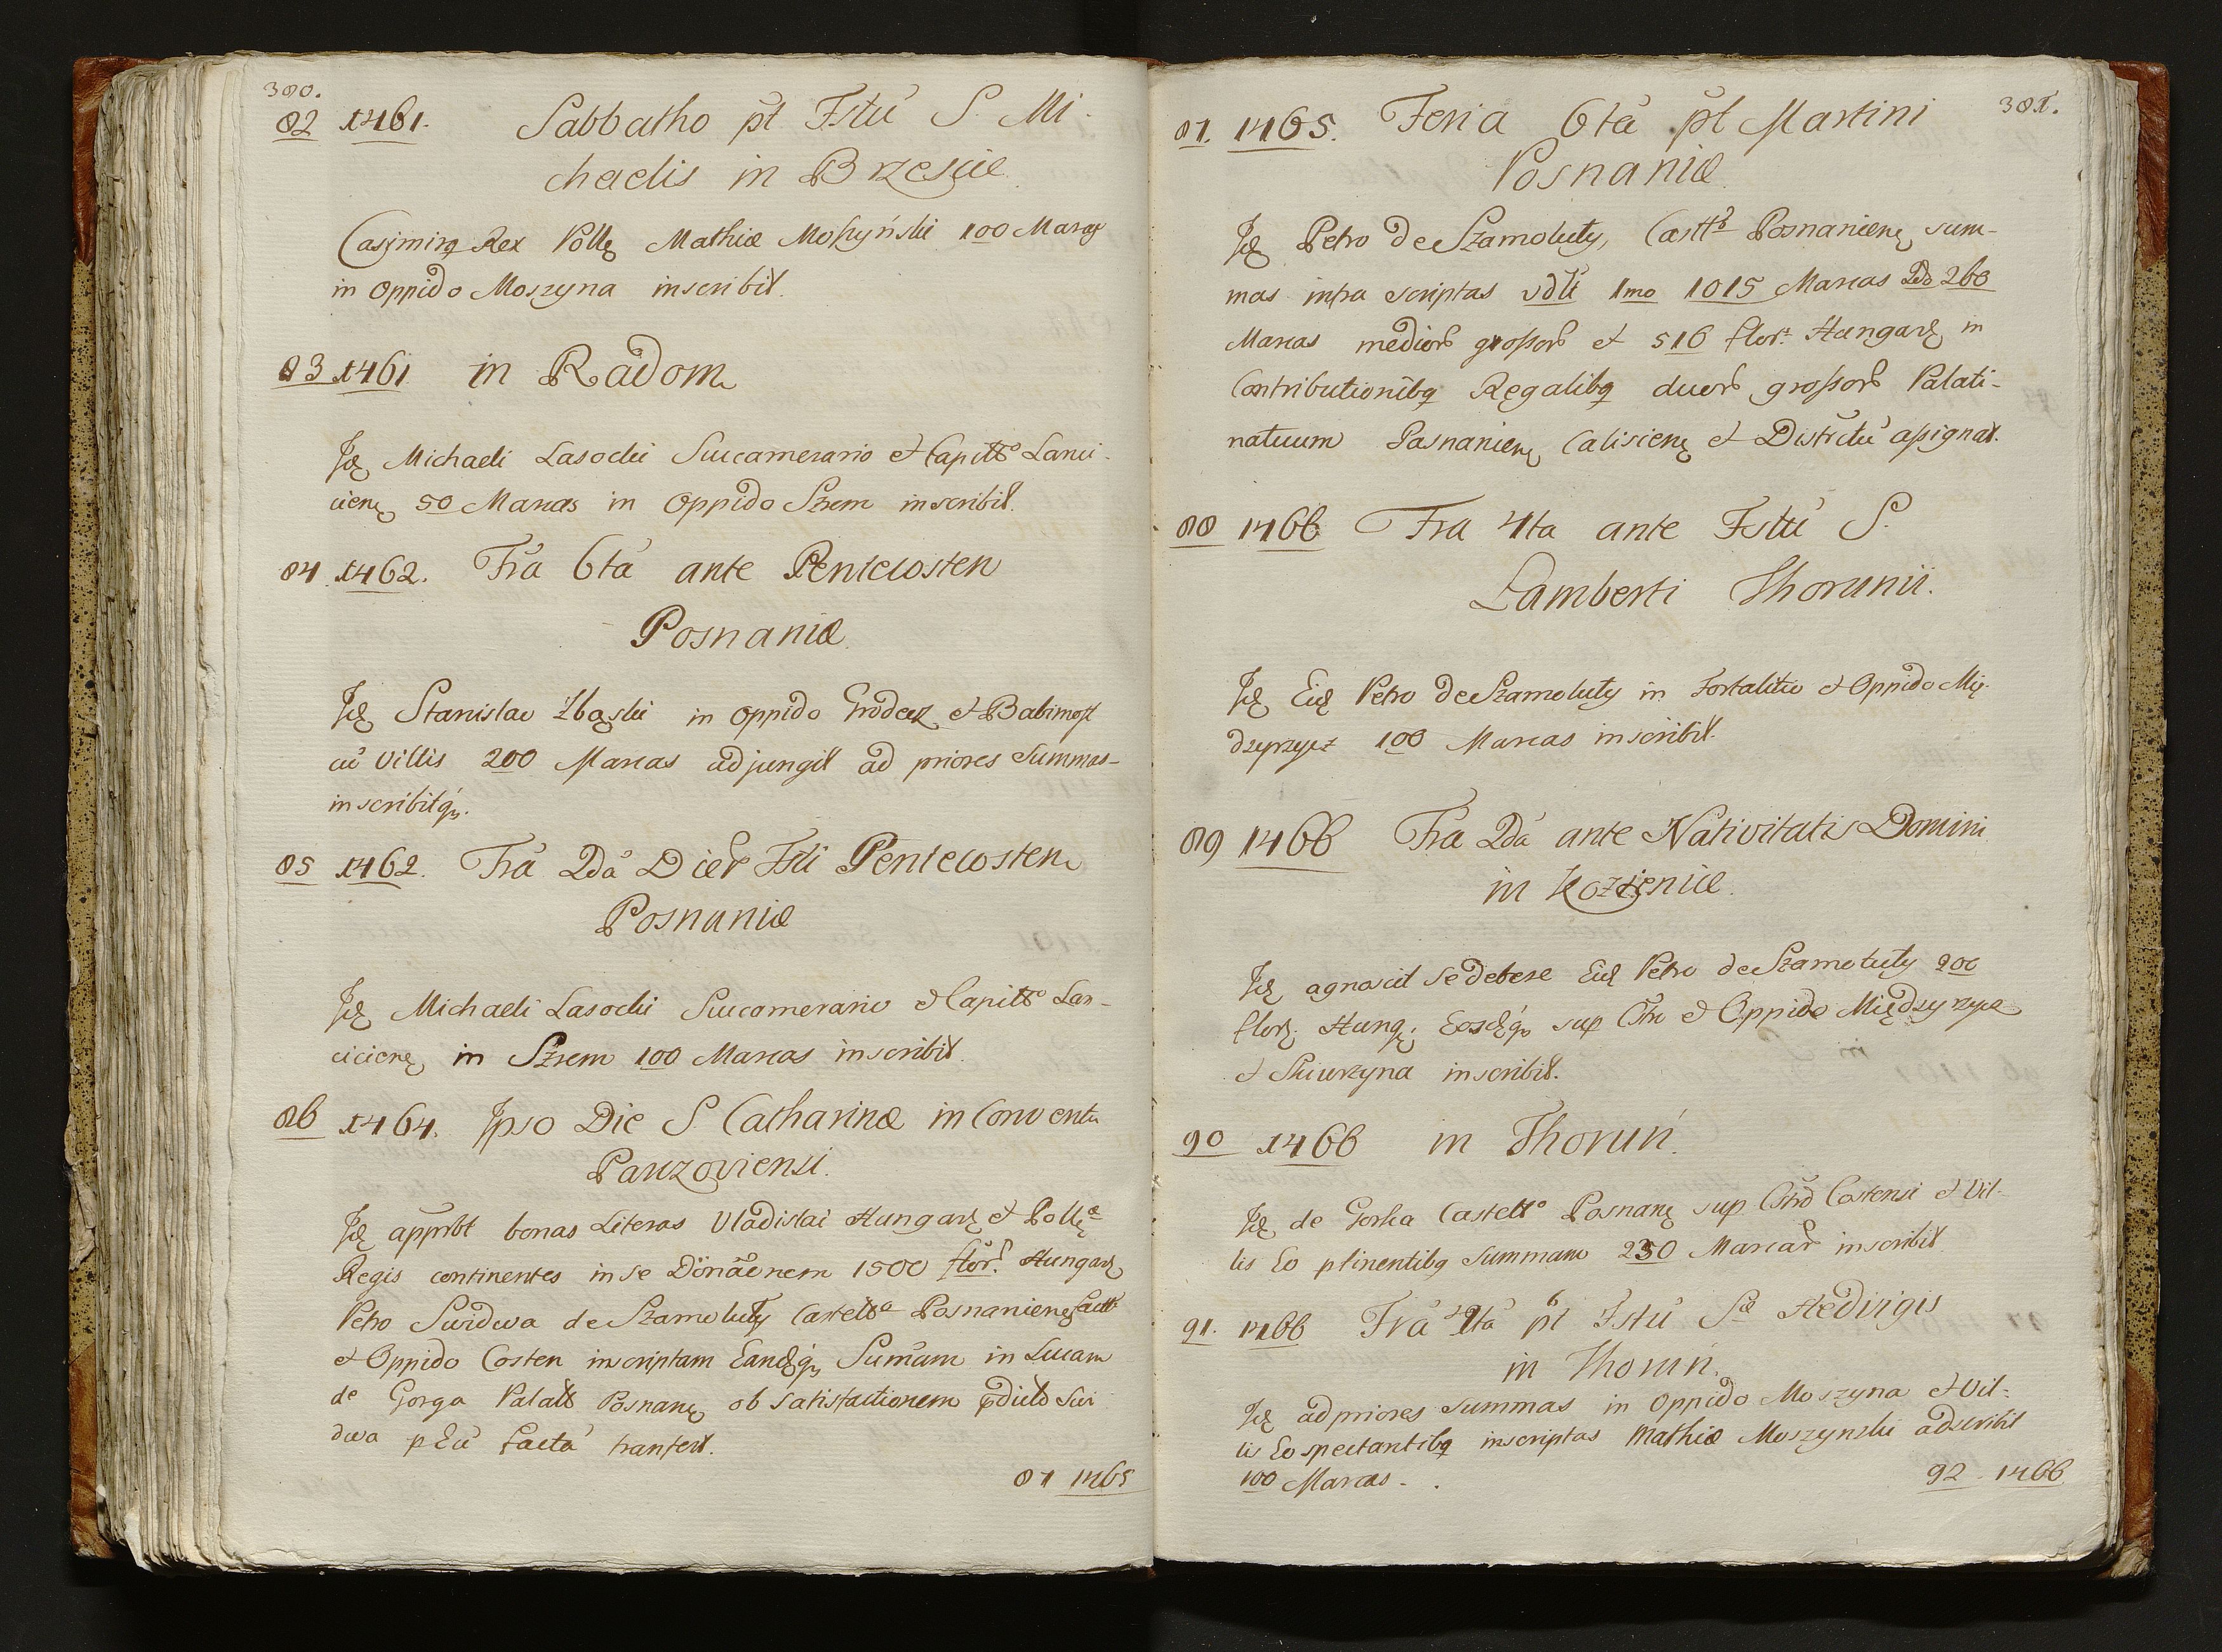 380.
82 1461. Sabbatho pt Fstu S. Mi-
chaelis in Brzescie.
Casimirq Rex Pollę Mathiæ Moszyński 100 Marcas
in Oppido Moszyna inscribit.
83 1461 in Radom
Idę Michaeli Lasocki Succamerario et Capittō Lanci-
cienę 50 Marcas in Oppido Szrem inscribit.
84. 1462. Fra 6ta ante Pentecosten
Posnaniæ.
Idę Stanislao Zbąski in Oppido Grodecz et Babimost
cū Villis 200 Marcas adjungit ad priores Summas
inscribitq.
85 1462. Fra 2da Dier Fsti Pentecosten
Posnaniæ
Idę Michaeli Lasocki Succamerario et Capittō Lan-
cicienę in Szrem 100 Marcas inscribit.
86 1464. Ipso Die S Catharinæ in Conventu
Parczoviensi.
Idę apprbt bonas Literas Vladislai Hungarę et Pollę
Regis continentes in se Donāōnem 1500 flor. Hungarę
Petro Swidwa de Szamotuły Castellō Posnanienę
et Oppido Costen inscriptam Eandęq Sumam in Lucam
de Gorga Palatt Posnanę ob satisfactionem pdicto Swi
dwa p Eū factā tranfert.
87 1465
381.
87. 1465. Feria 6ta pt Martini
Posnaniæ.
Idę Petro de Szamotuły, Casttō Posnanienę sum-
mas infra scriptas vdłt 1mo 1015 Marcas 2do 260
Marcas medior grossor et 516 flor. Hungarę in
Contributionibq Regalibq duor grossor Palati-
natuum Posnanienę Calisienę et Districtū assignat.
88 1466 Fra 4ta ante Fstū S.
Lamberti Thorunii.
Idę Eidę Petro de Szamotuły in Fortalitio et Oppido Mię-
dzyrzycz 100 Marcas inscribit.
89 1466 Fra 2da ante Nativitatis Domini
in Kozienice.
Idę agnoscit se debere Eidę Petro de Szamotuły 200
florę. Hungę. Eosdęq sup Ctro et Oppido Międzyrzycz
et Skwirzyna inscribit.
90 1466 in Thoruń.
Idę de Gorka Castellō Posnanę sup Ctro Costensi et Vil-
lis Eo ptinentibq Summam 230 Marcar inscribit
91. 1466 Fra 4ta pt Fstū S Hedvigis
in Thoruń.
Idę ad priores Summas in Oppido Moszyna et Vil-
lis Eo spectantibq inscriptas Mathiæ Moszynski adscribit
100 Marcas.
92. 1466